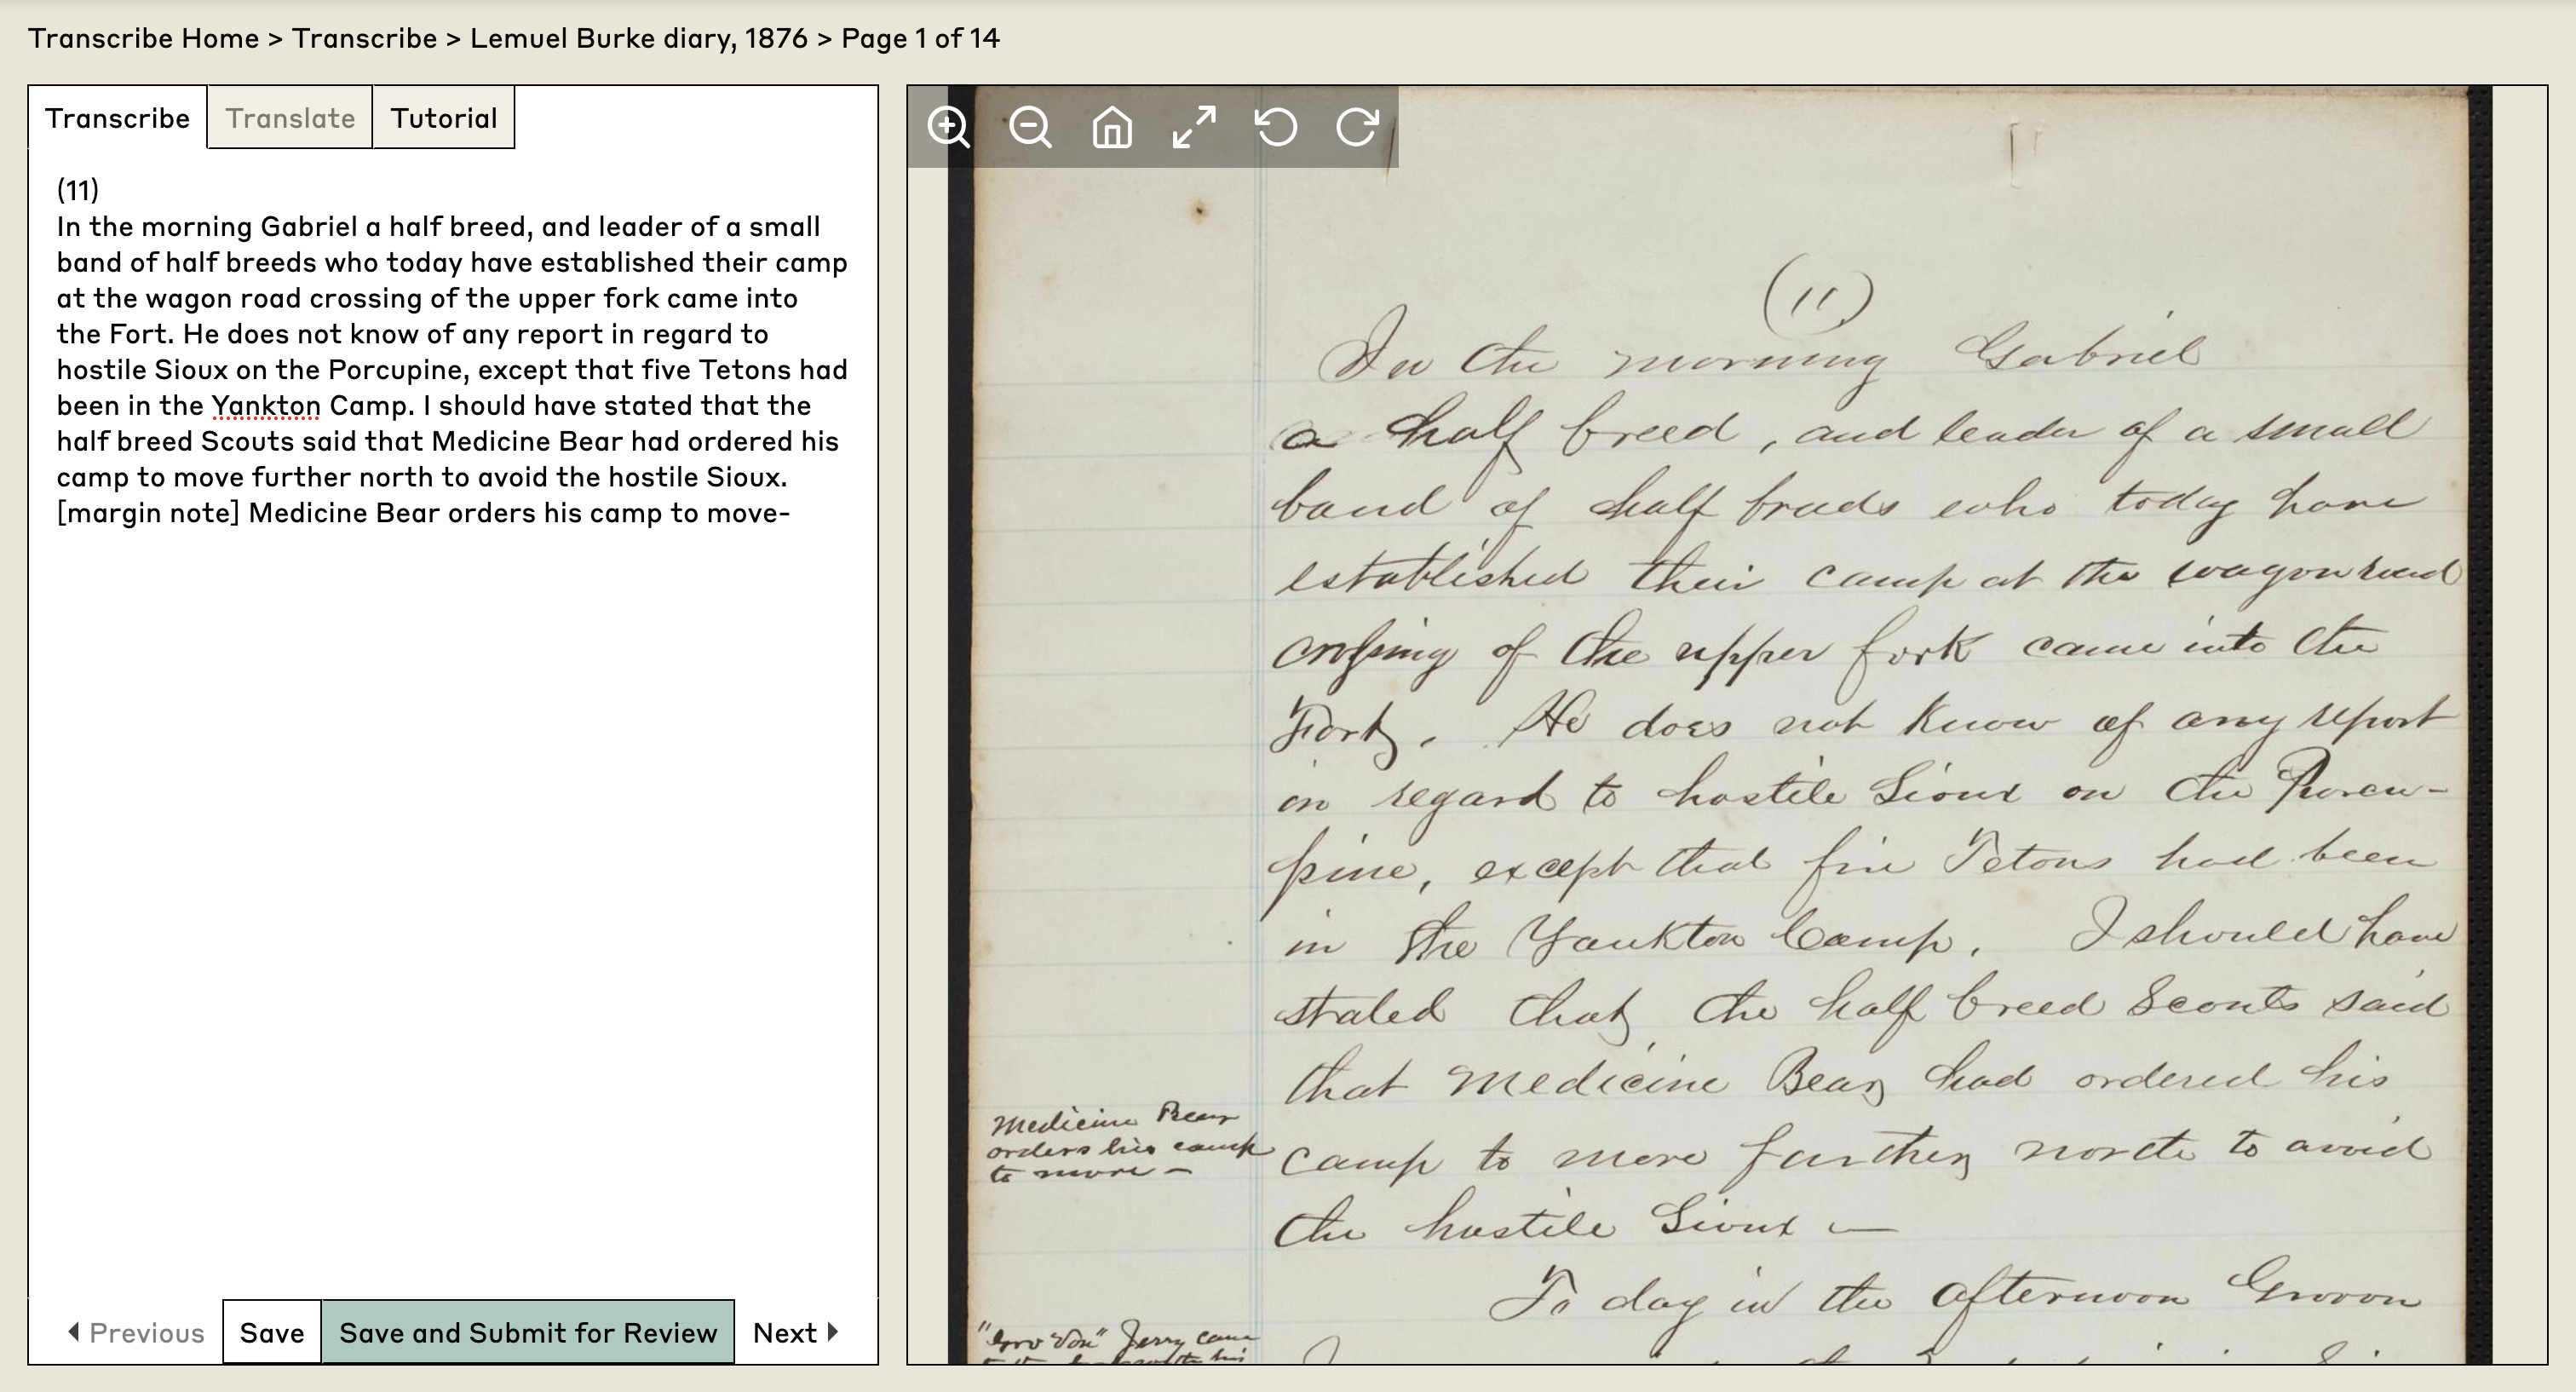 Transcribe Home > Transcribe > Lemuel Burke diary, 1876 > Page 1 of 14
Transcribe
Translate
Tutorial
(11)
In the morning Gabriel a half breed, and leader of a small
band of half breeds who today have established their camp
at the wagon road crossing of the upper fork came into
the Fort. He does not know of any report in regard to
hostile Sioux on the Porcupine, except that five Tetons had
been in the Yankton Camp. I should have stated that the
half breed Scouts said that Medicine Bear had ordered his
camp to move further north to avoid the hostile Sioux.
[margin note] Medicine Bear orders his camp to move-
Previous
Save
Save and Submit for Review
Next
(11)
In the morning Gabriel
a half breed, and leader of a small
band of half breeds who today have
established their camp at the wagon road
crossing of the upper fork came into the
Fort. He does not know of any report
in regard to hostile Sioux on the Porcu-
pine, except that five Tetons had been
in the Yankton Camp. I should have
stated that the half breed Scouts said
that Medicine Bear had ordered his
Medicine Bear
orders his camp
to move —
camp to move further north to avoid
the hostile Sioux —
To day in the afternoon
Jerry came